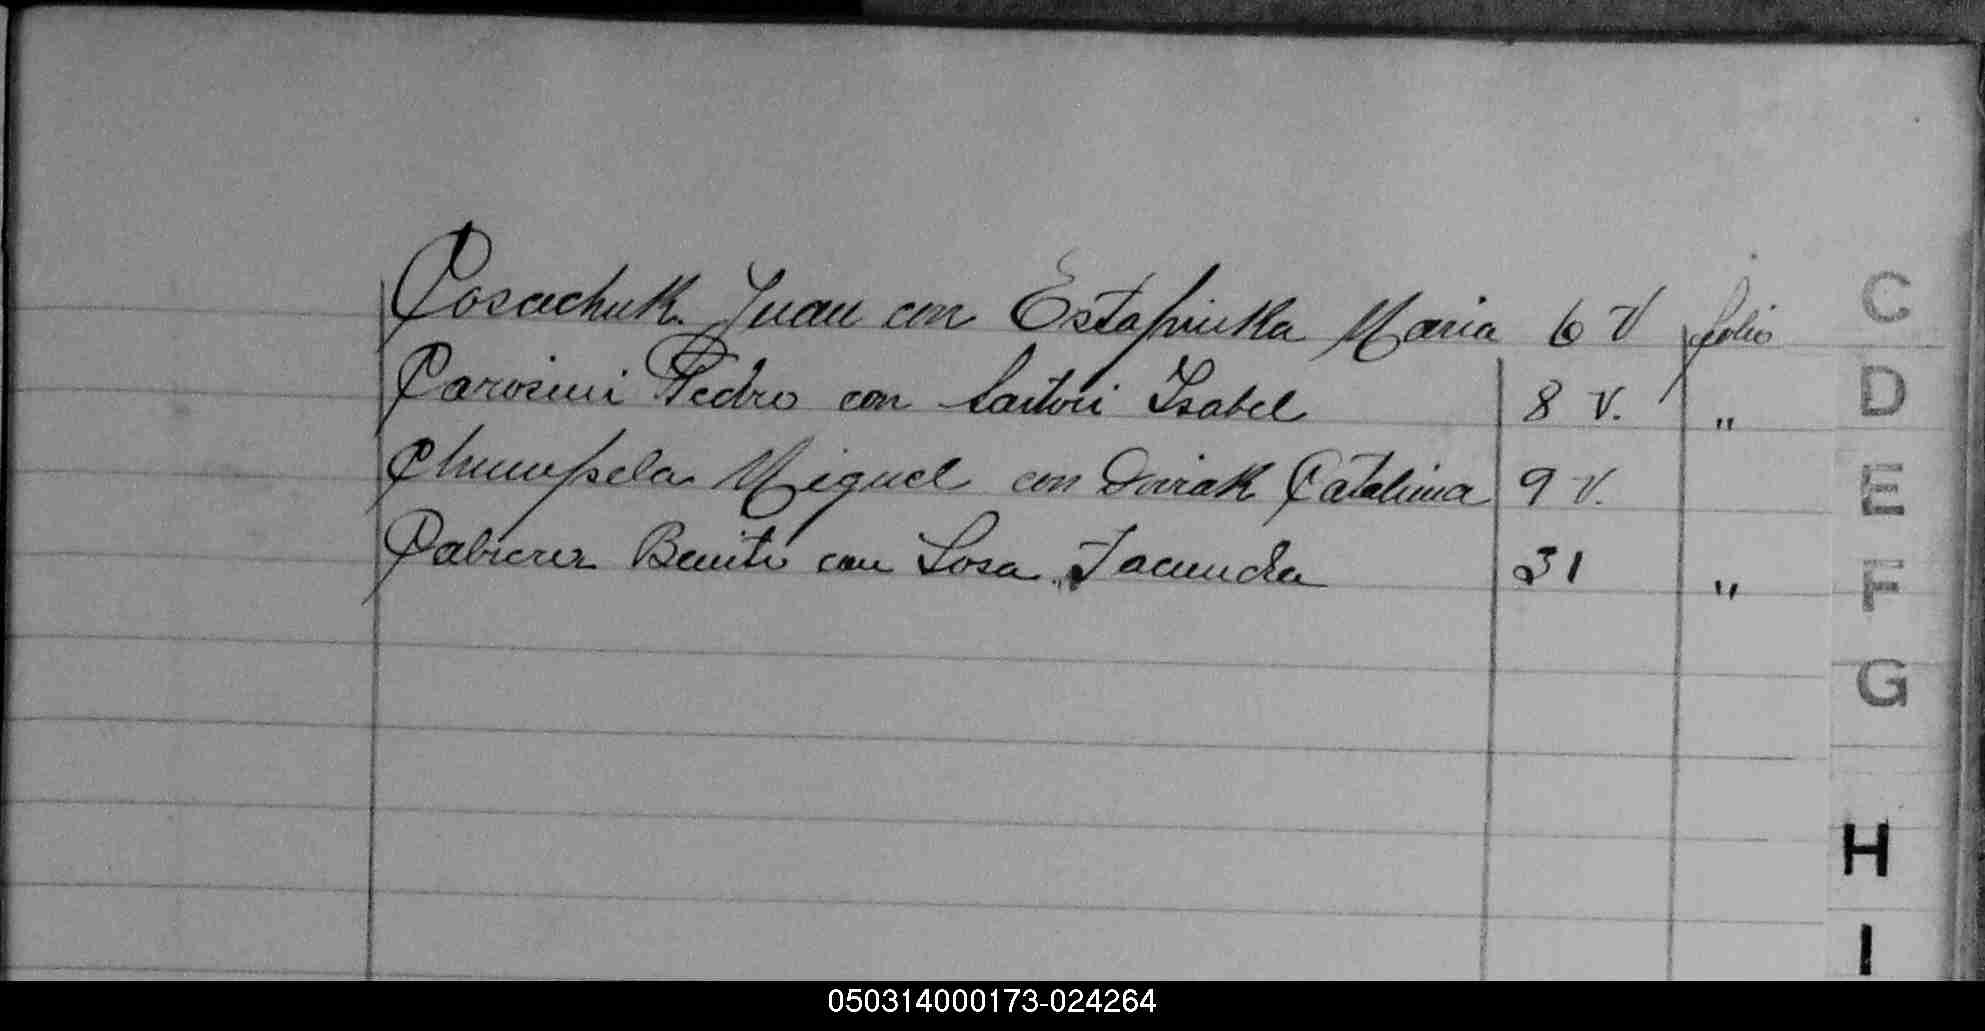 Cosachuk Juan con Estapiuka Maria 6 V folio
Carosini Pedro con Sartori Isabel 8 V. "
Chumpela Miguel con Dvirak Catalina 9 V.
Cabrera Benito con Sosa Facunda 31 "
C
D
E
F
G
H
I
050314000173-024264